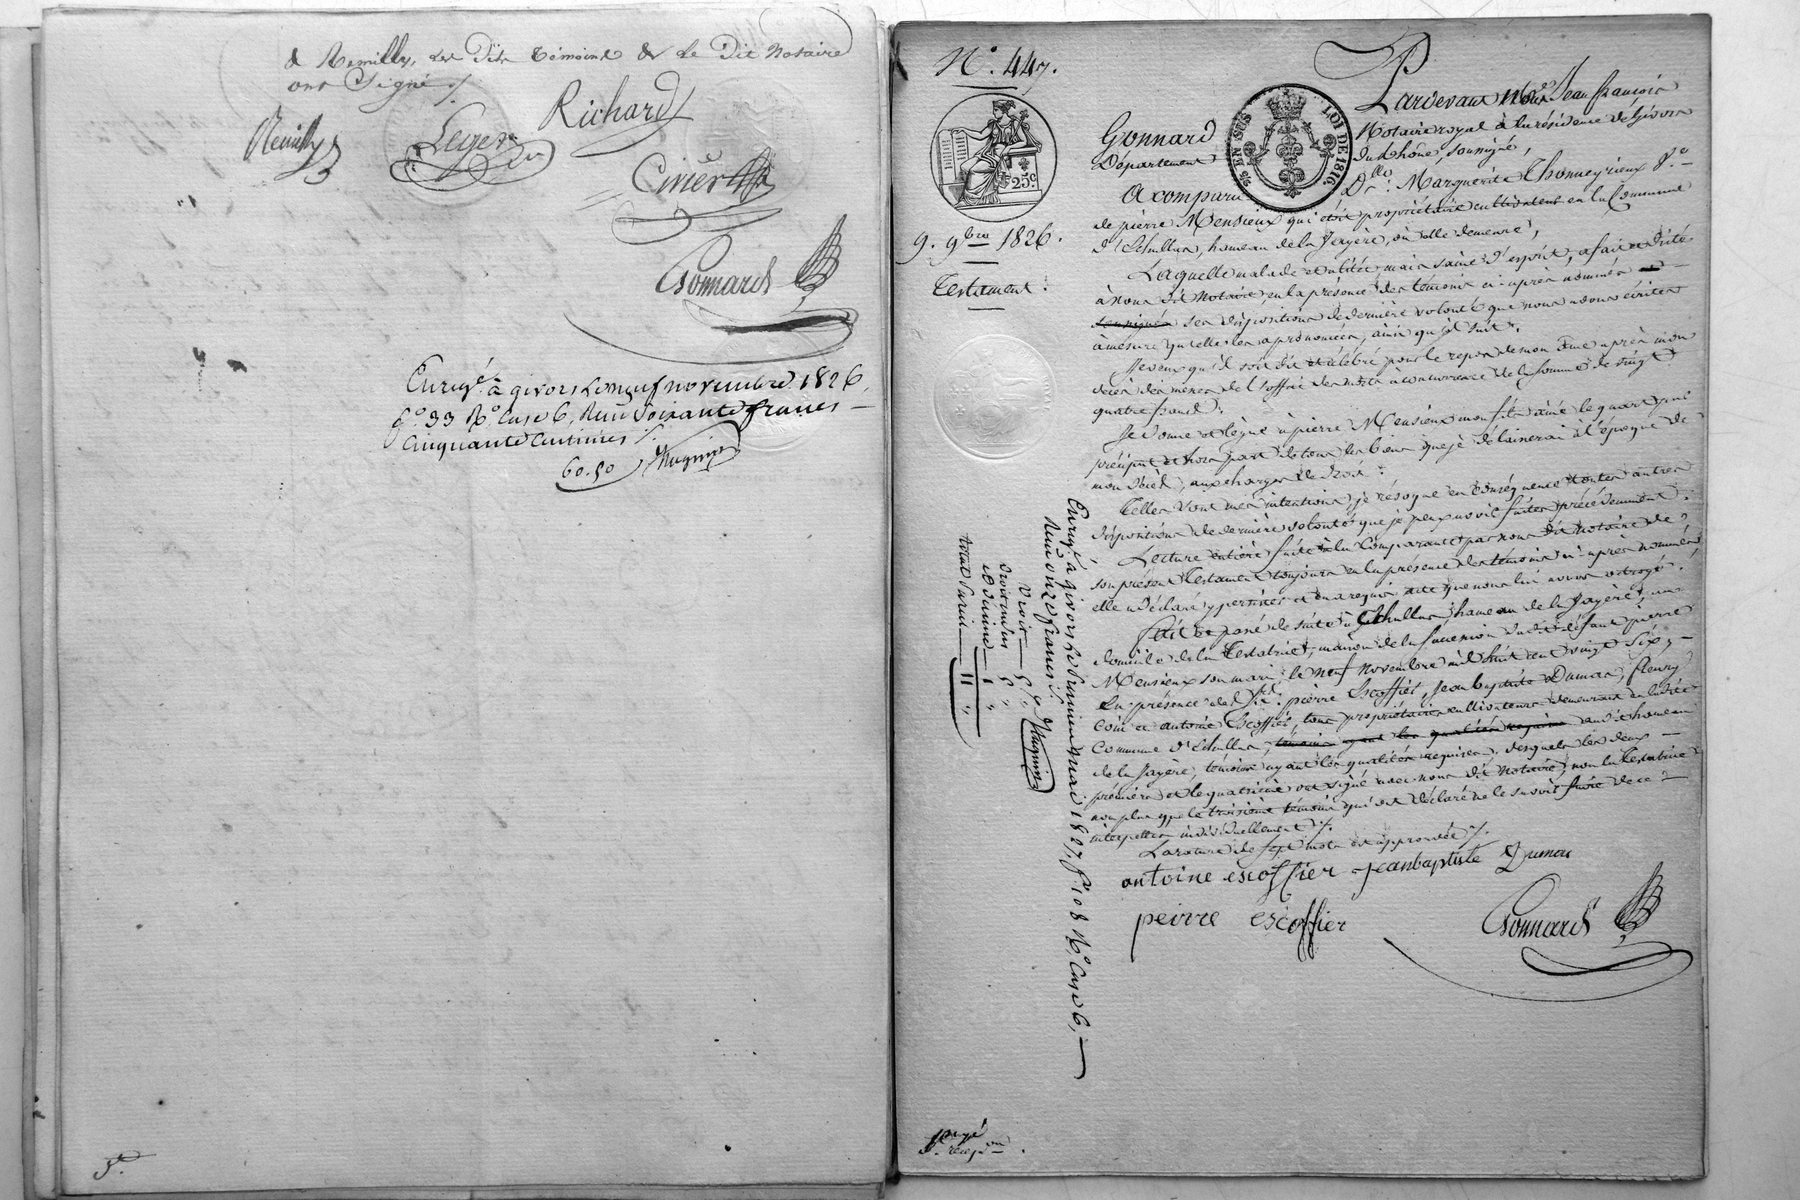 & Remilly, les Dits témoins & le Dit Notaire
ont Signé ./.
Remilly
Leger
Richard
Civier
Gonnard
Enregé à givors le neuf novembre 1826,
fo 33 Ro Case 6, Reçu Soixante francs
Cinquante Centimes ./.
60.50
No. 447.
25c
9. 9bre 1826.
Testament.
EN SUS
LOI DE 1816.
Pardevant Me Jean françois
Gonnard Notaire royal à la résidence de Givors
Département du Rhône, soussigné,
A comparu Dlle Marguerite Thonneyrieux Ve
de pierre Mensieux qui étoit propriétaire cultivateur en la Commune
d'Echullas, hameau de la Jayère, où elle demeure,
Laquelle malade et alitée, mais saine d'esprit, a fait et dicté
à nous dit Notaire, en la présence des témoins ci-après nommés
soussignés ses dispositions de dernière volonté que nous avons écrites
à mesure qu'elle les a prononcées, ainsi qu'il suit.
Je veux qu'il soit dit et célébré pour le repos de mon âme après mon
décès des messes de l'office des morts à concurrence de la somme de vingt
quatre francs.
Je donne et lègue à pierre Mensieux mon fils aîné le quart par
préciput et hors part de tous les biens que je délaisserai à l'époque de
mon décès, aux charges de droit.
Telles sont mes intentions, je révoque en conséquence toutes autres
dispositions de dernière volonté que je peux avoir faites précédemment.
Lecture entière faite à la Comparante par nous dit notaire de
son présent Testament toujours en la présence des témoins ci-après nommés,
elle a déclaré y persister et en a requis acte que nous lui avons octroyé.
Fait et passé de suite à Echullas, hameau de la Jayère, au
domicile de la Testatrice, maison de la succession dudit défunt pierre
Mensieux son mari, le neuf Novembre mil huit cent vingt Six,
En présence de Srs pierre Escoffier, Jean baptiste Dumas, fleury
Coin et antoine Escoffier, tous propriétaires cultivateurs demeurant en ladite
Commune d'Echullas, témoins ayant les qualités requises audit hameau
de la Jayère, témoins ayant les qualités requises, desquels les deux
premiers et le quatrième ont signé avec nous dit Notaire, non la Testatrice
non plus que le troisième témoin qui ont déclaré ne le savoir faire de ce
interpellés individuellement ./.
La rature de sept mots est approuvée ./.
antoine escoffier jeanbaptiste Dumas
peirre escoffier
Gonnard
Enregé à givors le Premier Mai 1827, fo 108 Ro Case 6,
Reçu onze francs